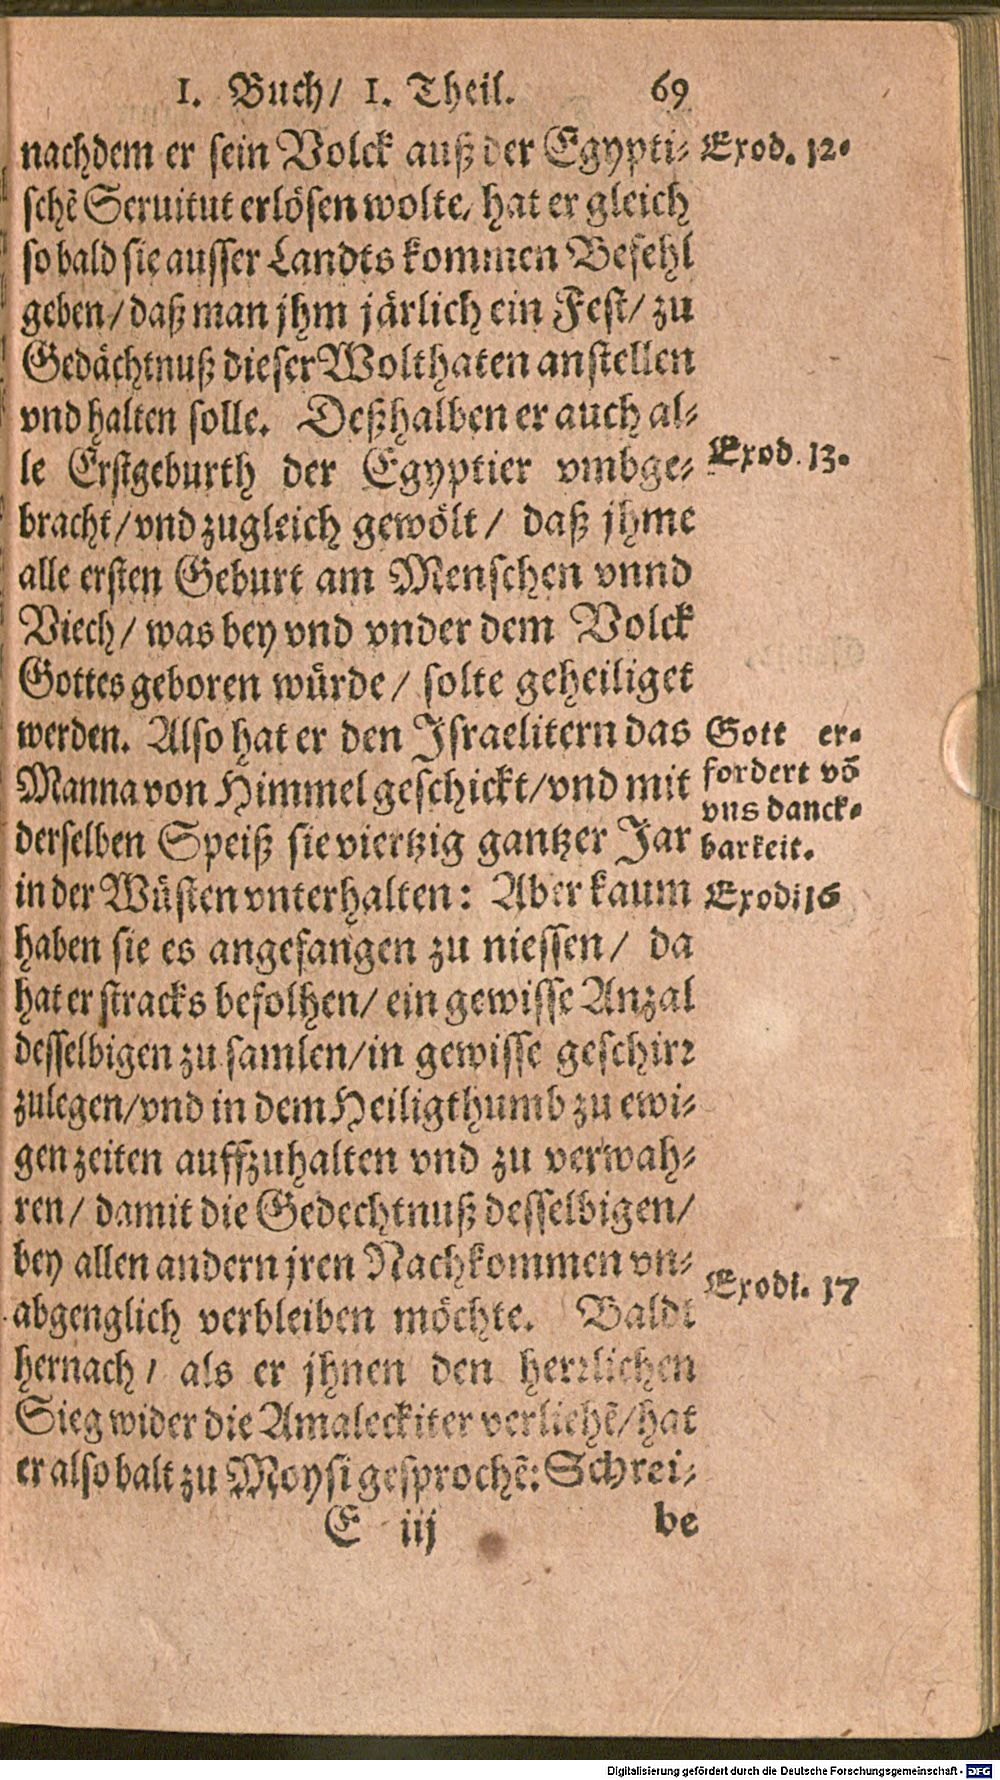 1. Buch/ 1. Theil. 69
nachdem er sein Volck auß der Egypti-
schē Seruitut erlösen wolte, hat er gleich
so bald sie ausser Landts kommen Befehl
geben/ daß man jhm järlich ein Fest/ zu
Gedächtnuß dieser Wolthaten anstellen
vnd halten solle. Deßhalben er auch al-
le Erstgeburth der Egyptier vmbge-
bracht/ vnd zugleich gewölt/ daß jhme
alle ersten Geburt am Menschen vnnd
Viech/ was bey vnd vnder dem Volck
Gottes geboren würde/ solte geheiliget
werden. Also hat er den Israelitern das
Manna von Himmel geschickt/ vnd mit
derselben Speiß sie viertzig gantzer Jar
in der Wüsten vnterhalten: Aber kaum
haben sie es angefangen zu niessen/ da
hat er stracks befolhen/ ein gewisse Anzal
desselbigen zu samlen/ in gewisse geschirr
zulegen/ vnd in dem Heiligthumb zu ewi-
gen zeiten auffzuhalten vnd zu verwah-
ren/ damit die Gedechtnuß desselbigen/
bey allen andern jren Nachkommen vn-
abgenglich verbleiben möchte. Baldt
hernach/ als er jhnen den herrlichen
Sieg wider die Amaleckiter verliehē/ hat
er also balt zu Moysi gesprochē: Schrei-
E iij be
Exod. 12.
Exod. 13.
Gott er-
fordert vō
vns danck-
barkeit.
Exodi 16
Exodi. 17
Digitalisierung gefördert durch die Deutsche Forschungsgemeinschaft - DFG